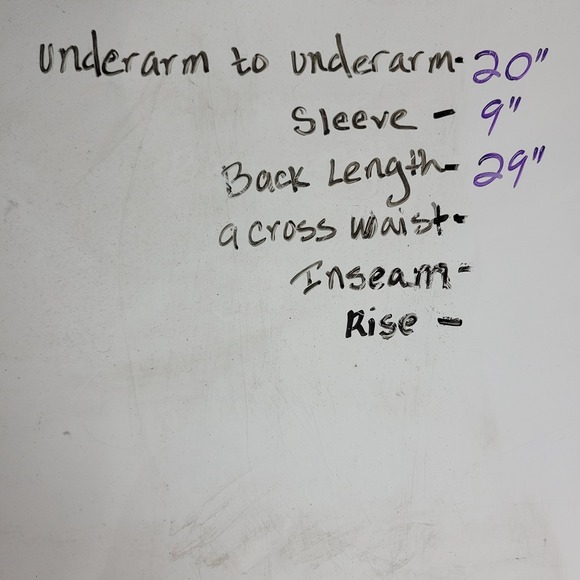 underarm to underarm- 20"
Sleeve - 9"
Back Length- 29"
across waist-
Inseam-
Rise -